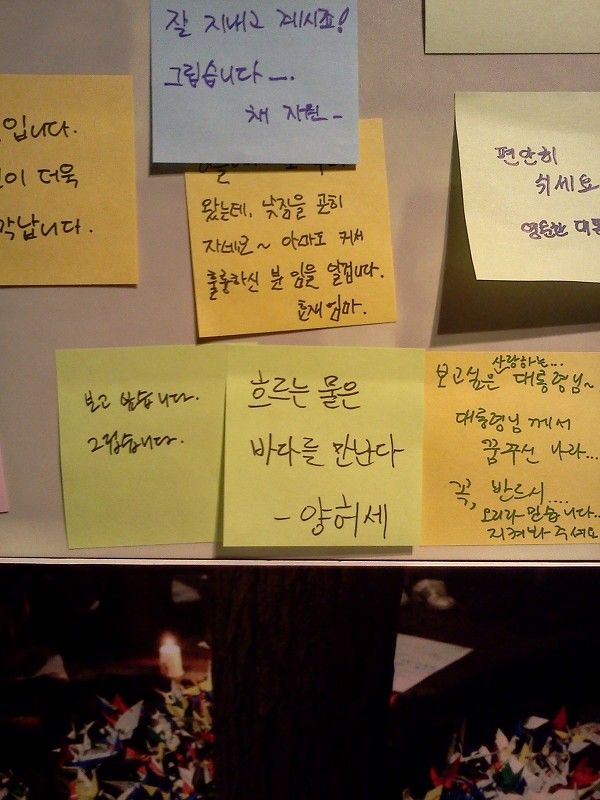 잘 지내고 계시죠!
그립습니다 —.
채 자원 -
입니다.
이 더욱
각납니다.
왔는데, 낮잠을 곤히
자네요~ 아마도 커서
훌륭하신 분 임을 알겁니다.
효재 엄마.
편안히
쉬세요
영원한 대통
보고 싶습니다.
그립습니다.
흐르는 물은
바다를 만난다
- 양허세
사랑하는...
보고싶은 대통령님~
대통령님께서
꿈꾸신 나라...
꼭, 반드시....
오리라 믿습니다..
지켜봐 주셔요